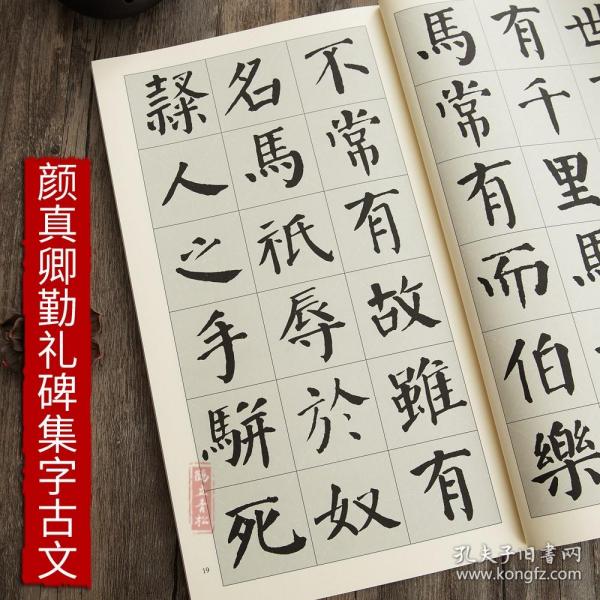 颜真卿勤礼碑集字古文
世
有千里馬
馬常有而伯樂
不常有故雖有
名馬祇辱於奴
隸人之手駢死
19
孔夫子旧書网
www.kongfz.com